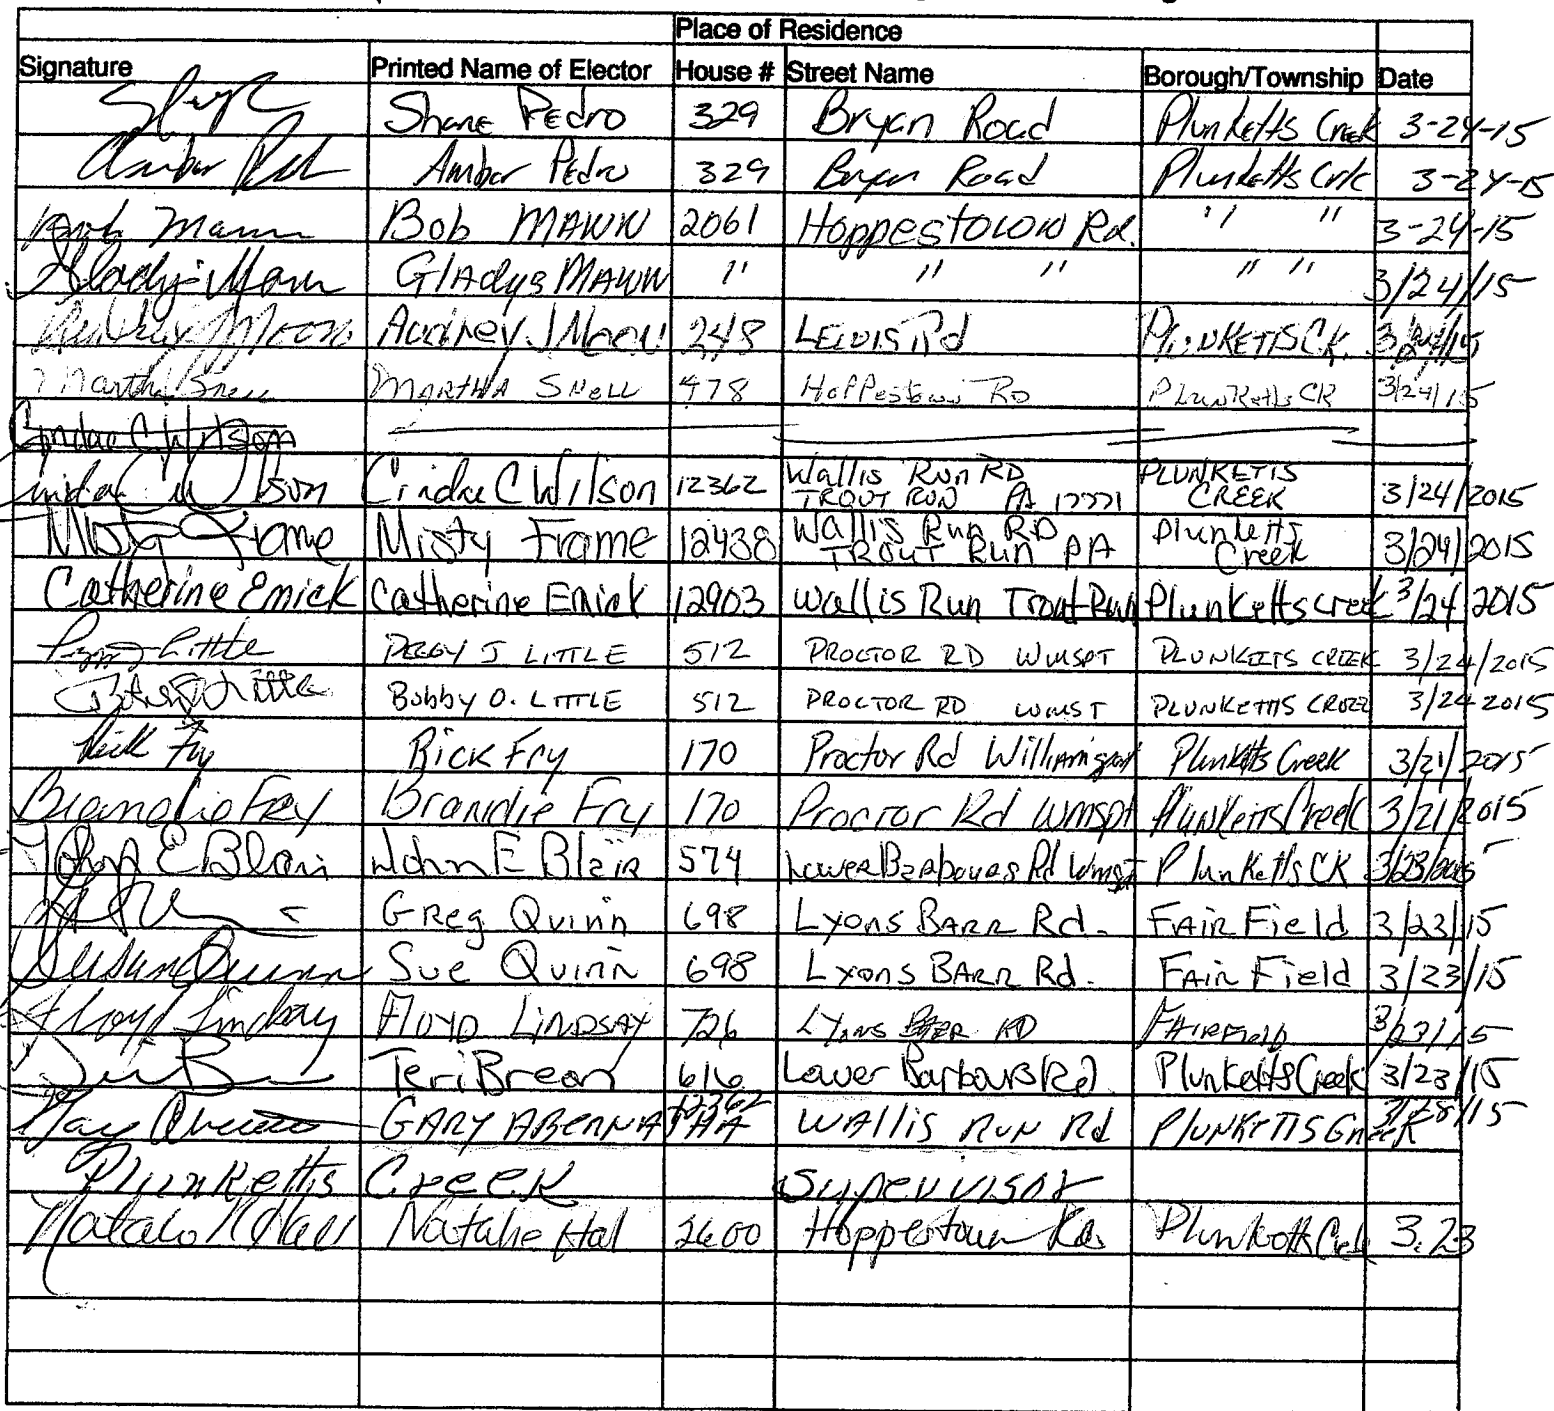 Place of Residence
Signature Printed Name of Elector House # Street Name Borough/Township Date
Shane Pedro 329 Bryan Road Plunketts Creek 3-24-15
Amber Pedro 329 Bryan Road Plunketts Crk 3-24-15
Bob Mann Bob MANN 2061 Hoppestown Rd. " " 3-24-15
Gladys Mann GLAdys MANN " " " " " 3/24/15
Audrey Moon Audrey J Moon 248 LEWIS Rd PLUNKETTS CK. 3/24/15
Martha Snell MARTHA SNELL 478 Hoppestown RD PLUNKetts CK 3/24/15
Cindae C Wilson
Cindae C Wilson Cindae C Wilson 12362 Wallis Run RD PLUNKETTS 3/24/2015
TROUT RUN PA 17771 CREEK
Misty Frame Misty Frame 12438 Wallis Run RD Plunketts 3/24/2015
TROUT RUN PA Creek
Catherine Emick Catherine Emick 12903 Wallis Run Trout Run Plunketts creek 3/24 2015
Peggy Little PEGGY J LITTLE 512 PROCTOR RD WMSPT PLUNKETTS CREEK 3/24/2015
Bobby O Little Bobby O. LITTLE 512 PROCTOR RD WMST PLUNKETTS CREEK 3/24 2015
Rick Fry Rick Fry 170 Proctor Rd Williamsport Plunketts Creek 3/21/2015
Brandie Fry Brandie Fry 170 Proctor Rd Wmspt Plunketts Creek 3/21/2015
John E Blair John E Blair 574 Lower Barbours Rd Wmspt Plunketts CK 3/23/2015
Greg Quinn 698 Lyons BARR Rd. FAIRField 3/23/15
Susan Quinn Sue Quinn 698 Lyons BARR Rd. FAIRField 3/23/15
Floyd Lindsay FLOYD LINDSAY 726 LYONS RD FAIRFIELD 3/23/15
Teri Brean 616 Lower Barbours Rd. Plunketts Creek 3/23/15
GARY ABERNATHA 12362 WAllis RUN Rd PlUNKETTS Creek 3/28/15
Plunketts Creek Supervisor
Natalie Hall Natalie Hal 2600 Hoppestown Rd. Plunketts Crek 3.23